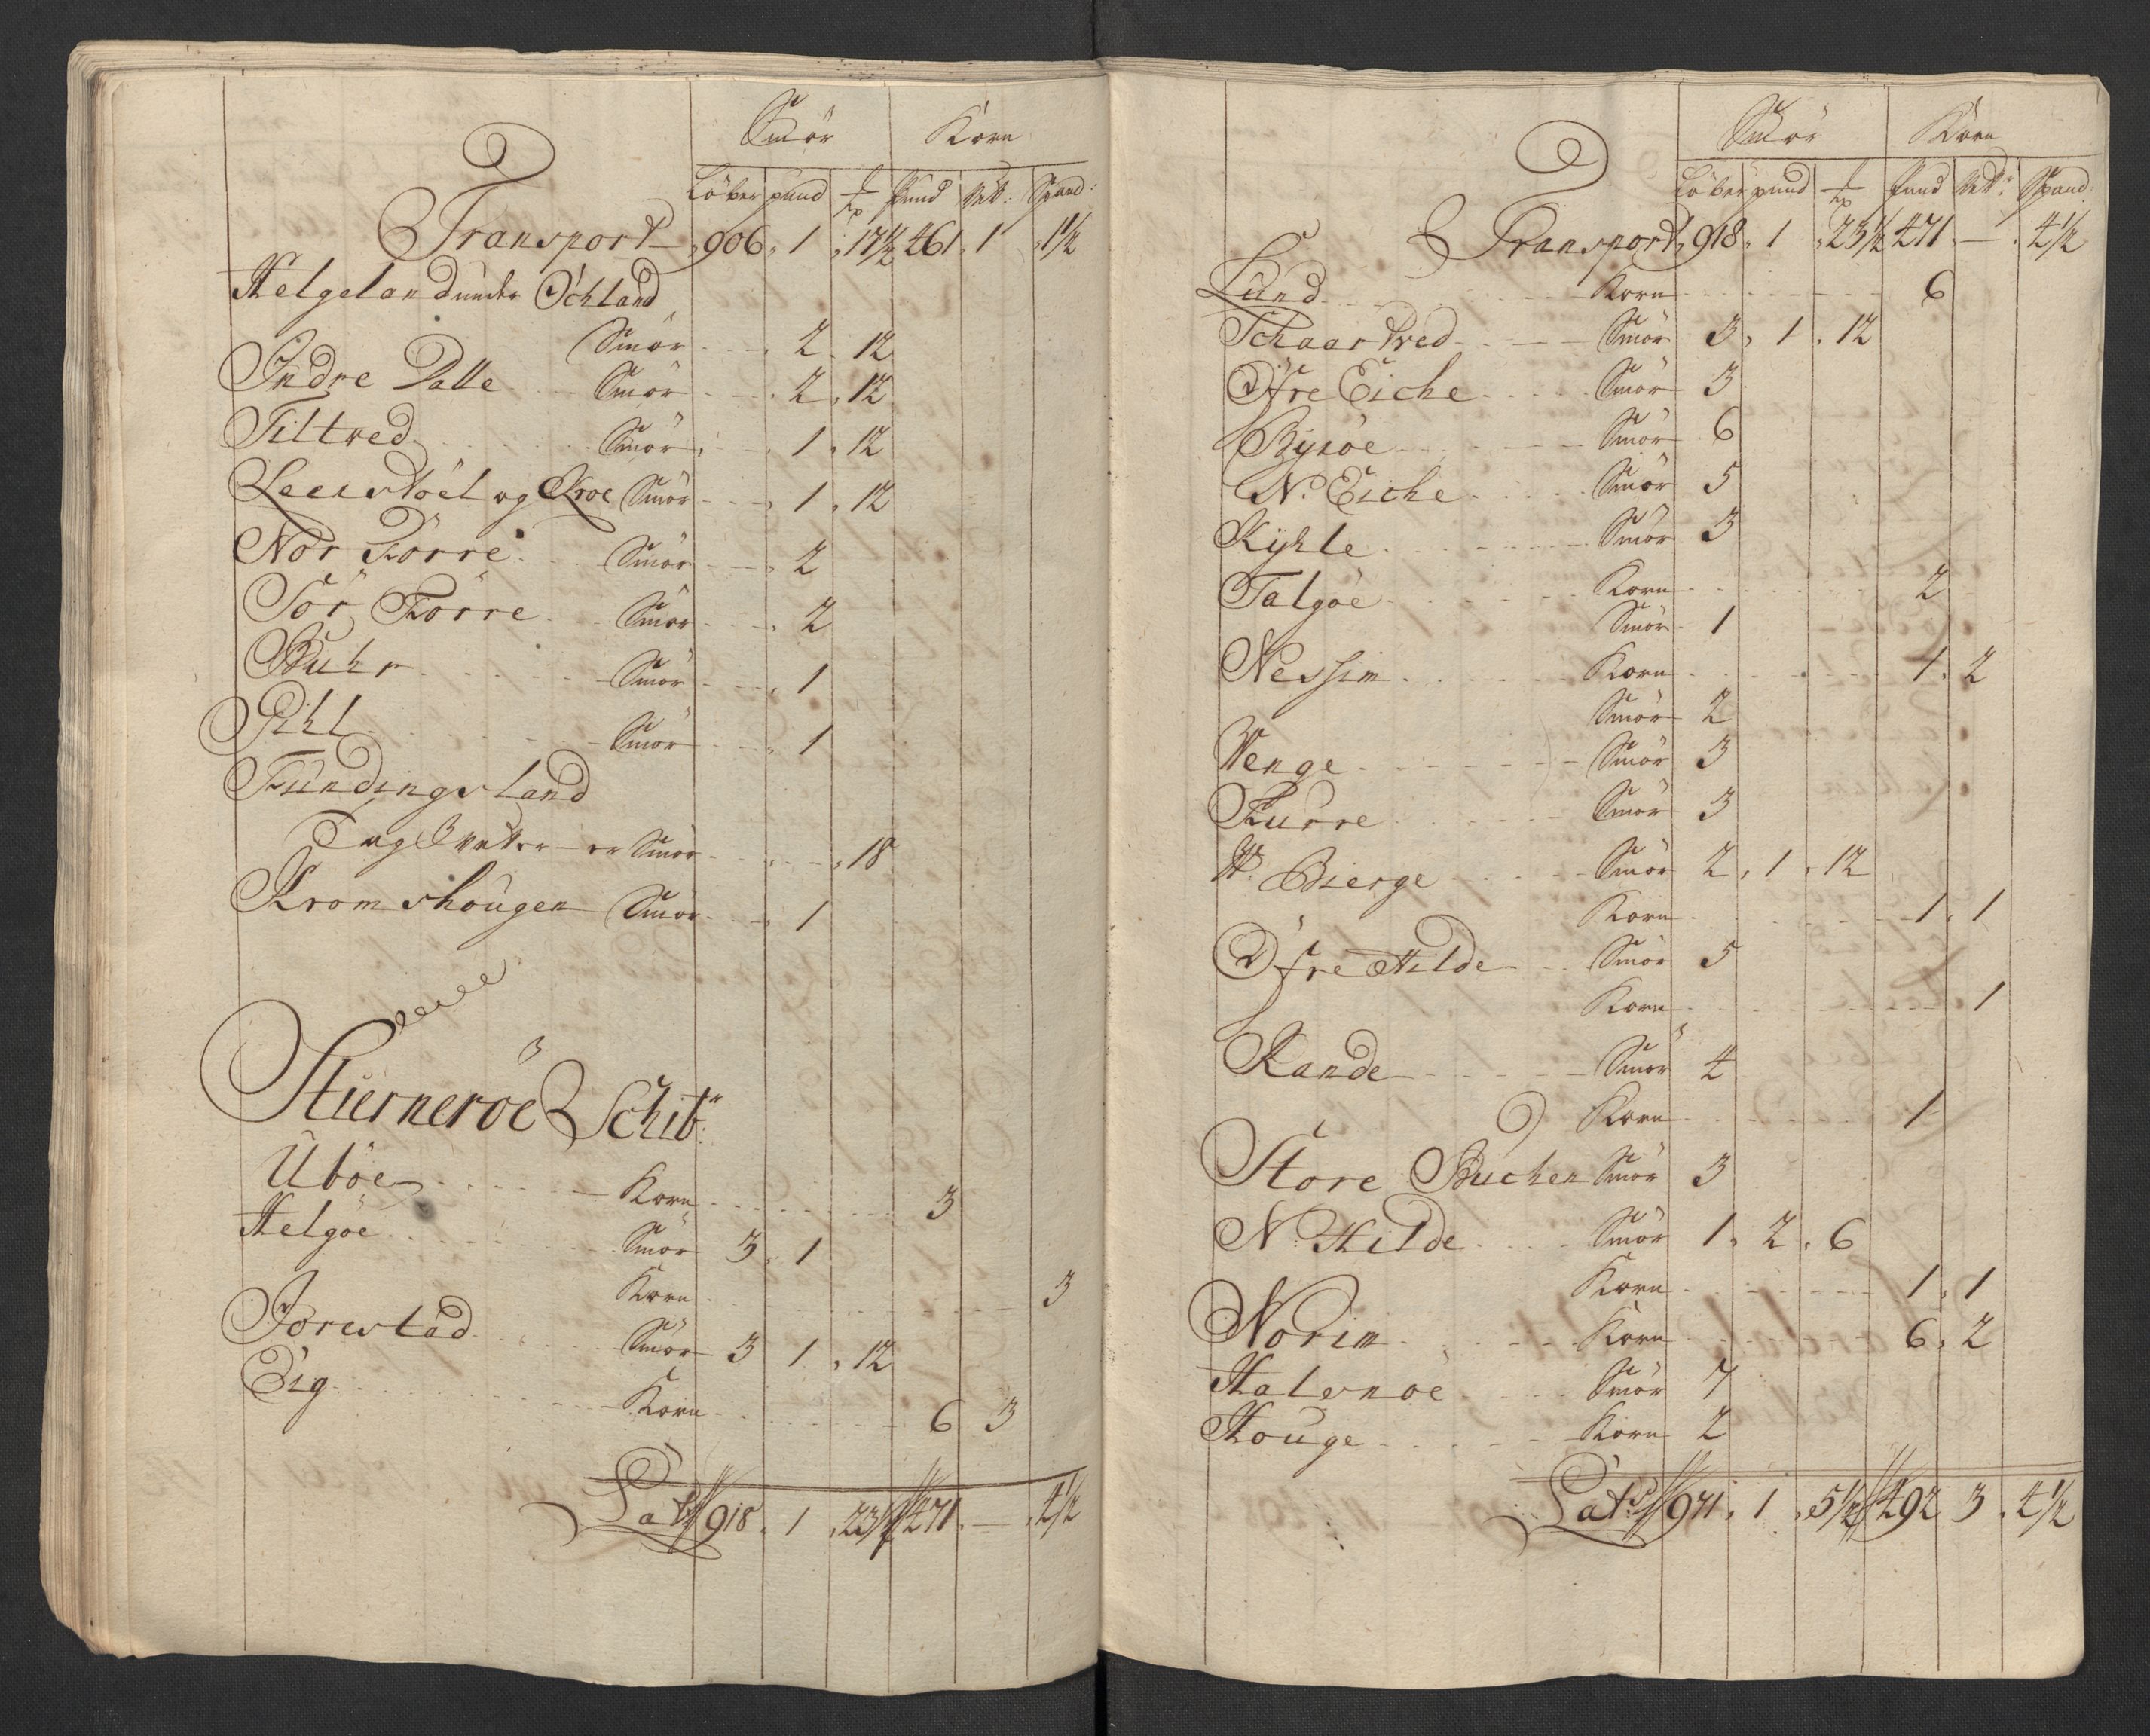 Smör Korn
Löber pund ℔ Pund Vet: Spand:
Transport 906. 1. 17½ 461. 1 1½
Helgeland under Öchland
Smör 2. 12
Indre Dalle Smör 2. 12
Tiltved Smör 1. 12
Leerstöel og Kroe Smör 1. 12
Nor Förre Smör 2
Sör Förre Smör 2
Buhr Smör 1
Pihl Smör 1
Fundingsland
Smör 18
Kromshougen Smör 1
Stierneröe Schibr:
Uböe Korn 3
Helgöe Smör 3. 1
Korn 3
Jorestad Smör 3 1. 12
Eig Korn 6 3
Lats 918. 1. 23½ 471. — 4½
Smör Korn
Löber pund ℔ Pund Vet: Spand:
Transport 918. 1. 23½ 471. — 4½
Lund Korn 6
Schaartved Smör 3. 1. 12
Öfre Eiche Smör 3
Byröe Smör 6
N. Eiche Smör 5
Kyhle Smör 3
Talgöe Korn 2
Smör 1
Nessim Korn 1. 2
Smör 2
Venge Smör 3
Furre Smör 3
V. Bierge Smör 2. 1. 12
Korn 1. 1
Öfre Hilde Smör 5
Korn 1
Rande Smör 4
Korn 1
Store Buchen Smör 3
N. Hilde Smör 1. 2. 6
Korn 1. 1
Norim Korn 6. 2
Halsnöe Smör 7
Houge Korn 2
Lats 971. 1. 5½ 492 3. 4½